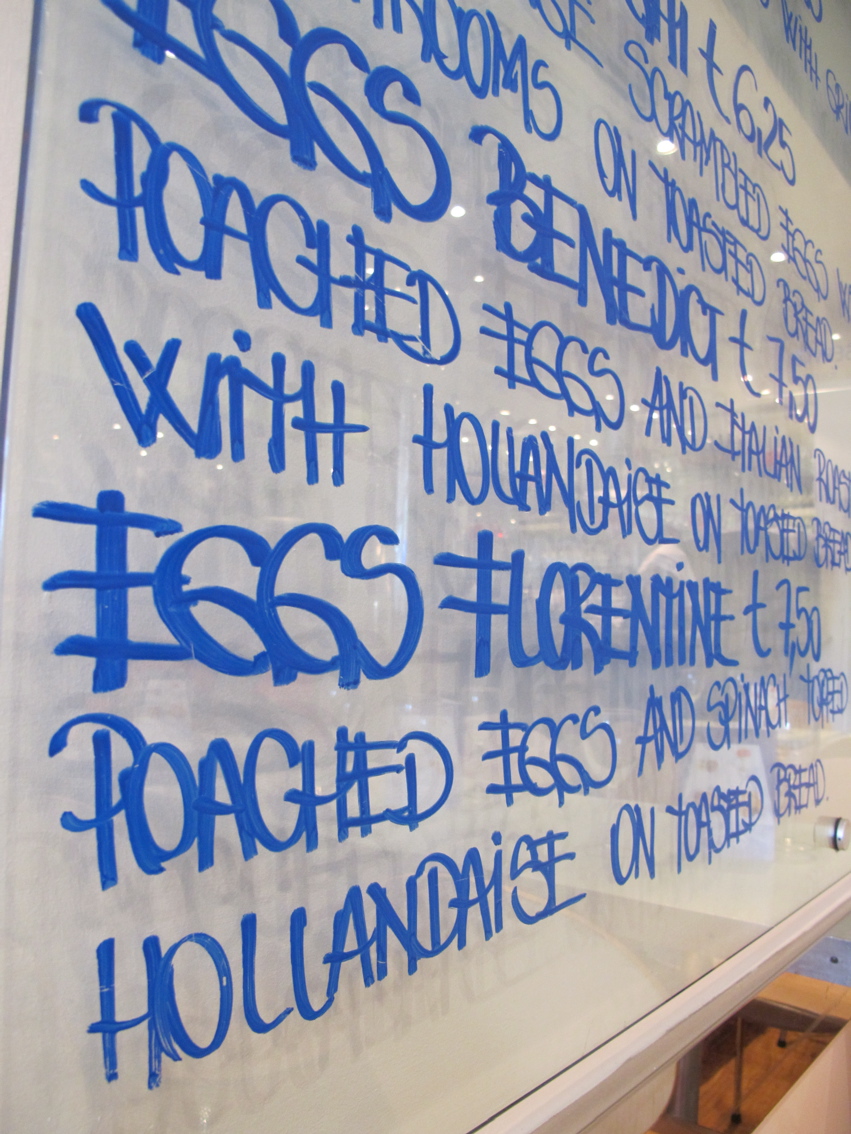 WITH
t 6,25
SCRAMBLED EGGS
ON TOASTED BREAD.
EGGS BENEDICT t 7,50
POACHED EGGS AND ITALIAN
WITH HOLLANDAISE ON TOASTED BREAD
EGGS FLORENTINE t 7,50
POACHED EGGS AND SPINACH TOPPED
HOLLANDAISE ON TOASTED BREAD.